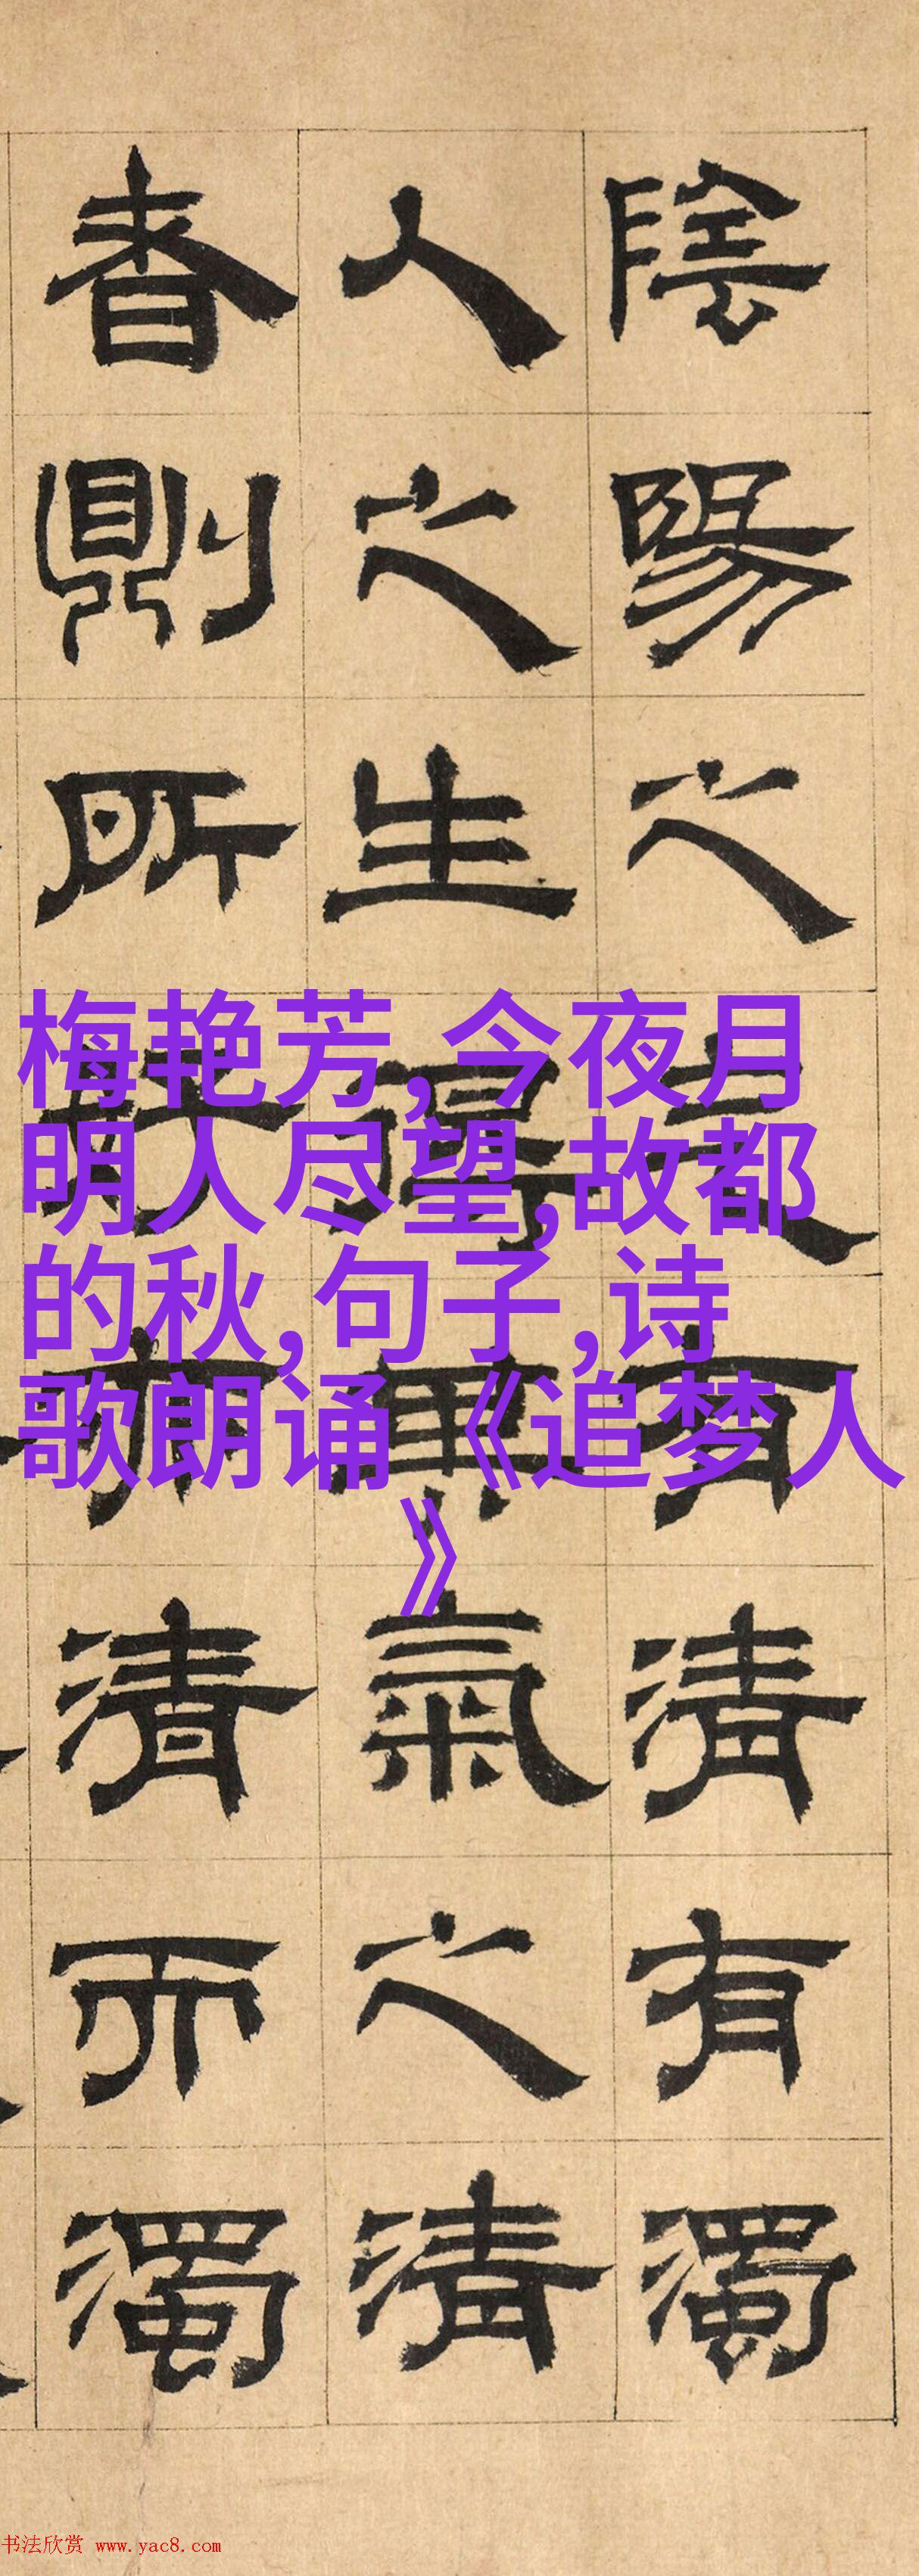 陰陽之气有清有濁
人之生得其氣之清
者則所清而濁
梅艳芳,今夜月
明人尽望,故都
的秋,句子,诗
歌朗诵《追梦人
》
书法欣赏 www.yac8.com